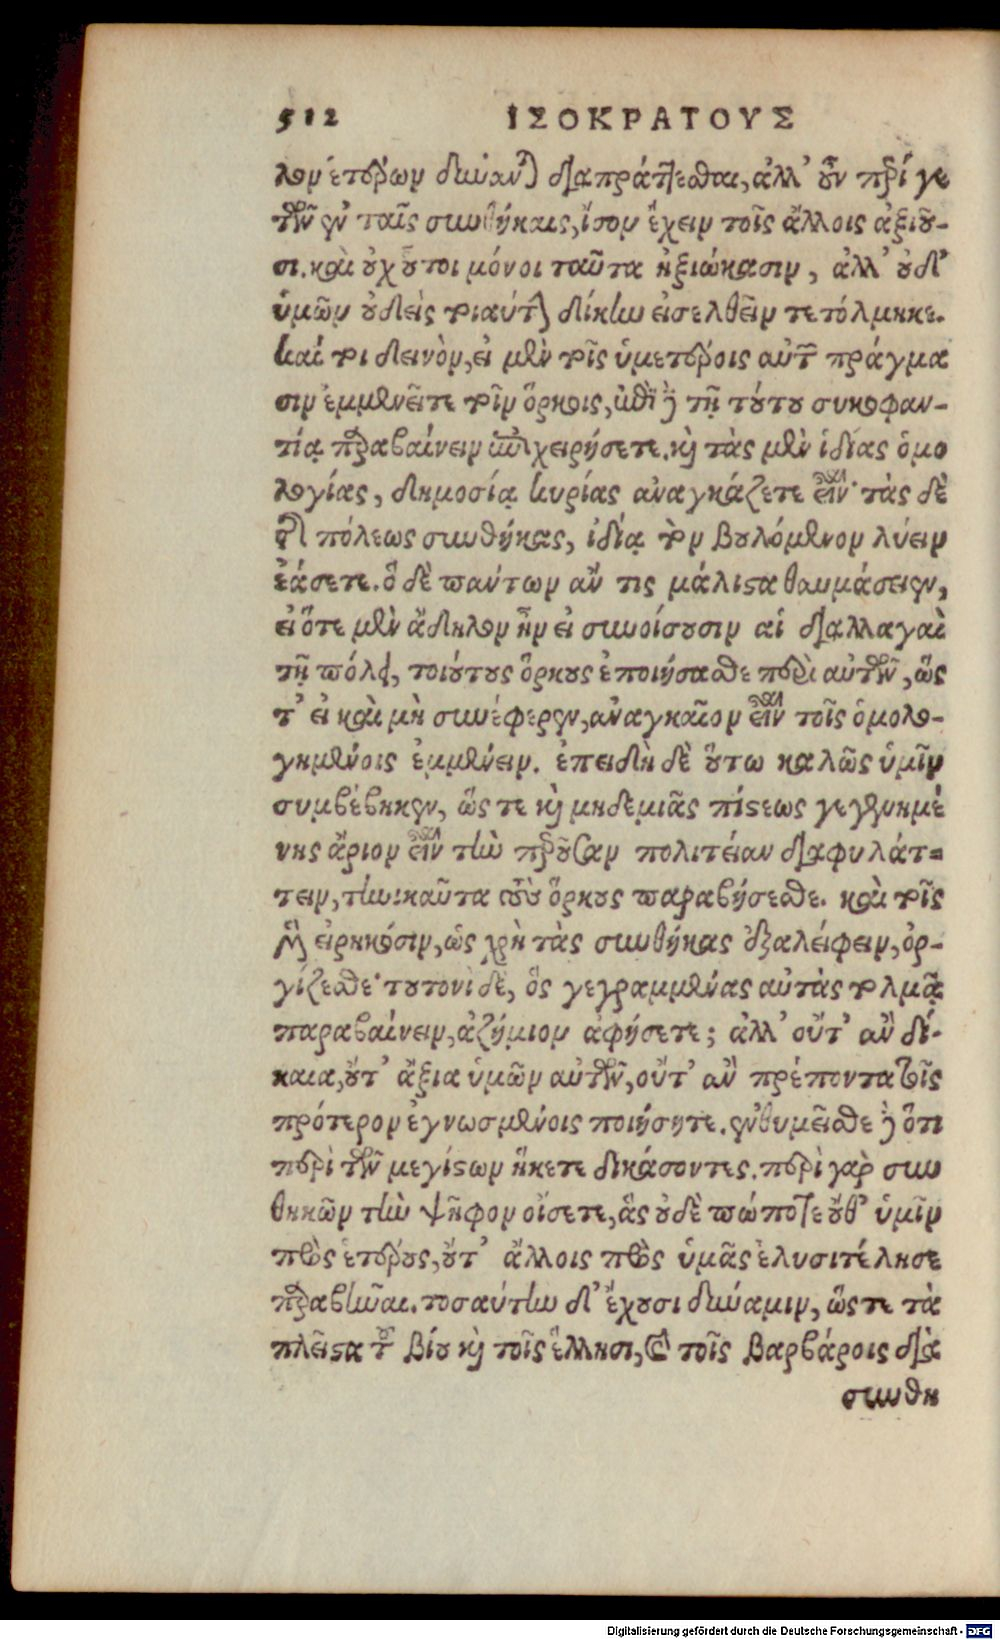 512 ΙΣΟΚΡΑΤΟΥΣ
λον ἑτέρων δύναν) διαπράττεσθαι, ἀλλ' οὖν περί γε
τῶν ἐν ταῖς συνθήκαις, ἴσον ἔχειν τοῖς ἄλλοις ἀξιοῦ-
σι. καὶ οὐχ οὗτοι μόνοι ταῦτα ἠξιώκασιν, ἀλλ' οὐδ'
ὑμῶν οὐδεὶς τοιαύτην δίκην εἰσελθεῖν τετόλμηκε.
καί τοι δεινὸν, εἰ μὲν τοῖς ὑμετέροις αὐτῶν πράγμα
σιν ἐμμενεῖτε τοῖς ὅρκοις, ἐπὶ δὲ τῇ τούτου συκοφαν-
τίᾳ παραβαίνειν ἐπιχειρήσετε. καὶ τὰς μὲν ἰδίας ὁμο
λογίας, δημοσίᾳ κυρίας ἀναγκάζετε εἶναι· τὰς δὲ
τῆς πόλεως συνθήκας, ἰδίᾳ τὸν βουλόμενον λύειν
ἐάσετε. ὃ δὲ πάντων ἄν τις μάλιστα θαυμάσειεν,
εἰ ὅτε μὲν ἄδηλον ἦν εἰ συνοίσουσιν αἱ διαλλαγαὶ
τῇ πόλει, τοιούτους ὅρκους ἐποιήσασθε περὶ αὐτῶν, ὥς
τ' εἰ καὶ μὴ συνέφερεν, ἀναγκαῖον εἶναι τοῖς ὁμολο-
γημένοις ἐμμένειν. ἐπειδὴ δὲ οὕτω καλῶς ὑμῖν
συμβέβηκεν, ὥς τε καὶ μηδεμιᾶς πίστεως γεγενημέ
νης ἄξιον εἶναι τὴν παροῦσαν πολιτείαν διαφυλάτ-
τειν, τηνικαῦτα τοὺς ὅρκους παραβήσεσθε. καὶ τοῖς
μὲν εἰρηκόσιν, ὡς χρὴ τὰς συνθήκας ἐξαλείφειν, ὀρ-
γίζεσθε· τουτονὶ δὲ, ὃς γεγραμμένας αὐτὰς τολμᾷ
παραβαίνειν, ἀζήμιον ἀφήσετε; ἀλλ' οὔτ' ἂν δί-
καια, οὔτ' ἄξια ὑμῶν αὐτῶν, οὔτ' ἂν πρέποντα τοῖς
πρότερον ἐγνωσμένοις ποιήσητε. ἐνθυμεῖσθε δὲ ὅτι
περὶ τῶν μεγίστων ἥκετε δικάσοντες. περὶ γὰρ συν
θηκῶν τὴν ψῆφον οἴσετε, ἃς οὐδὲ πώποτε οὔθ' ὑμῖν
πρὸς ἑτέρους, οὔτ' ἄλλοις πρὸς ὑμᾶς ἐλυσιτέλησε
παραβῆναι. τοσαύτην δ' ἔχουσι δύναμιν, ὥς τε τὰ
πλεῖστα τοῦ βίου καὶ τοῖς ἕλλησι, καὶ τοῖς βαρβάροις διὰ
συνθη
Digitalisierung gefördert durch die Deutsche Forschungsgemeinschaft - DFG